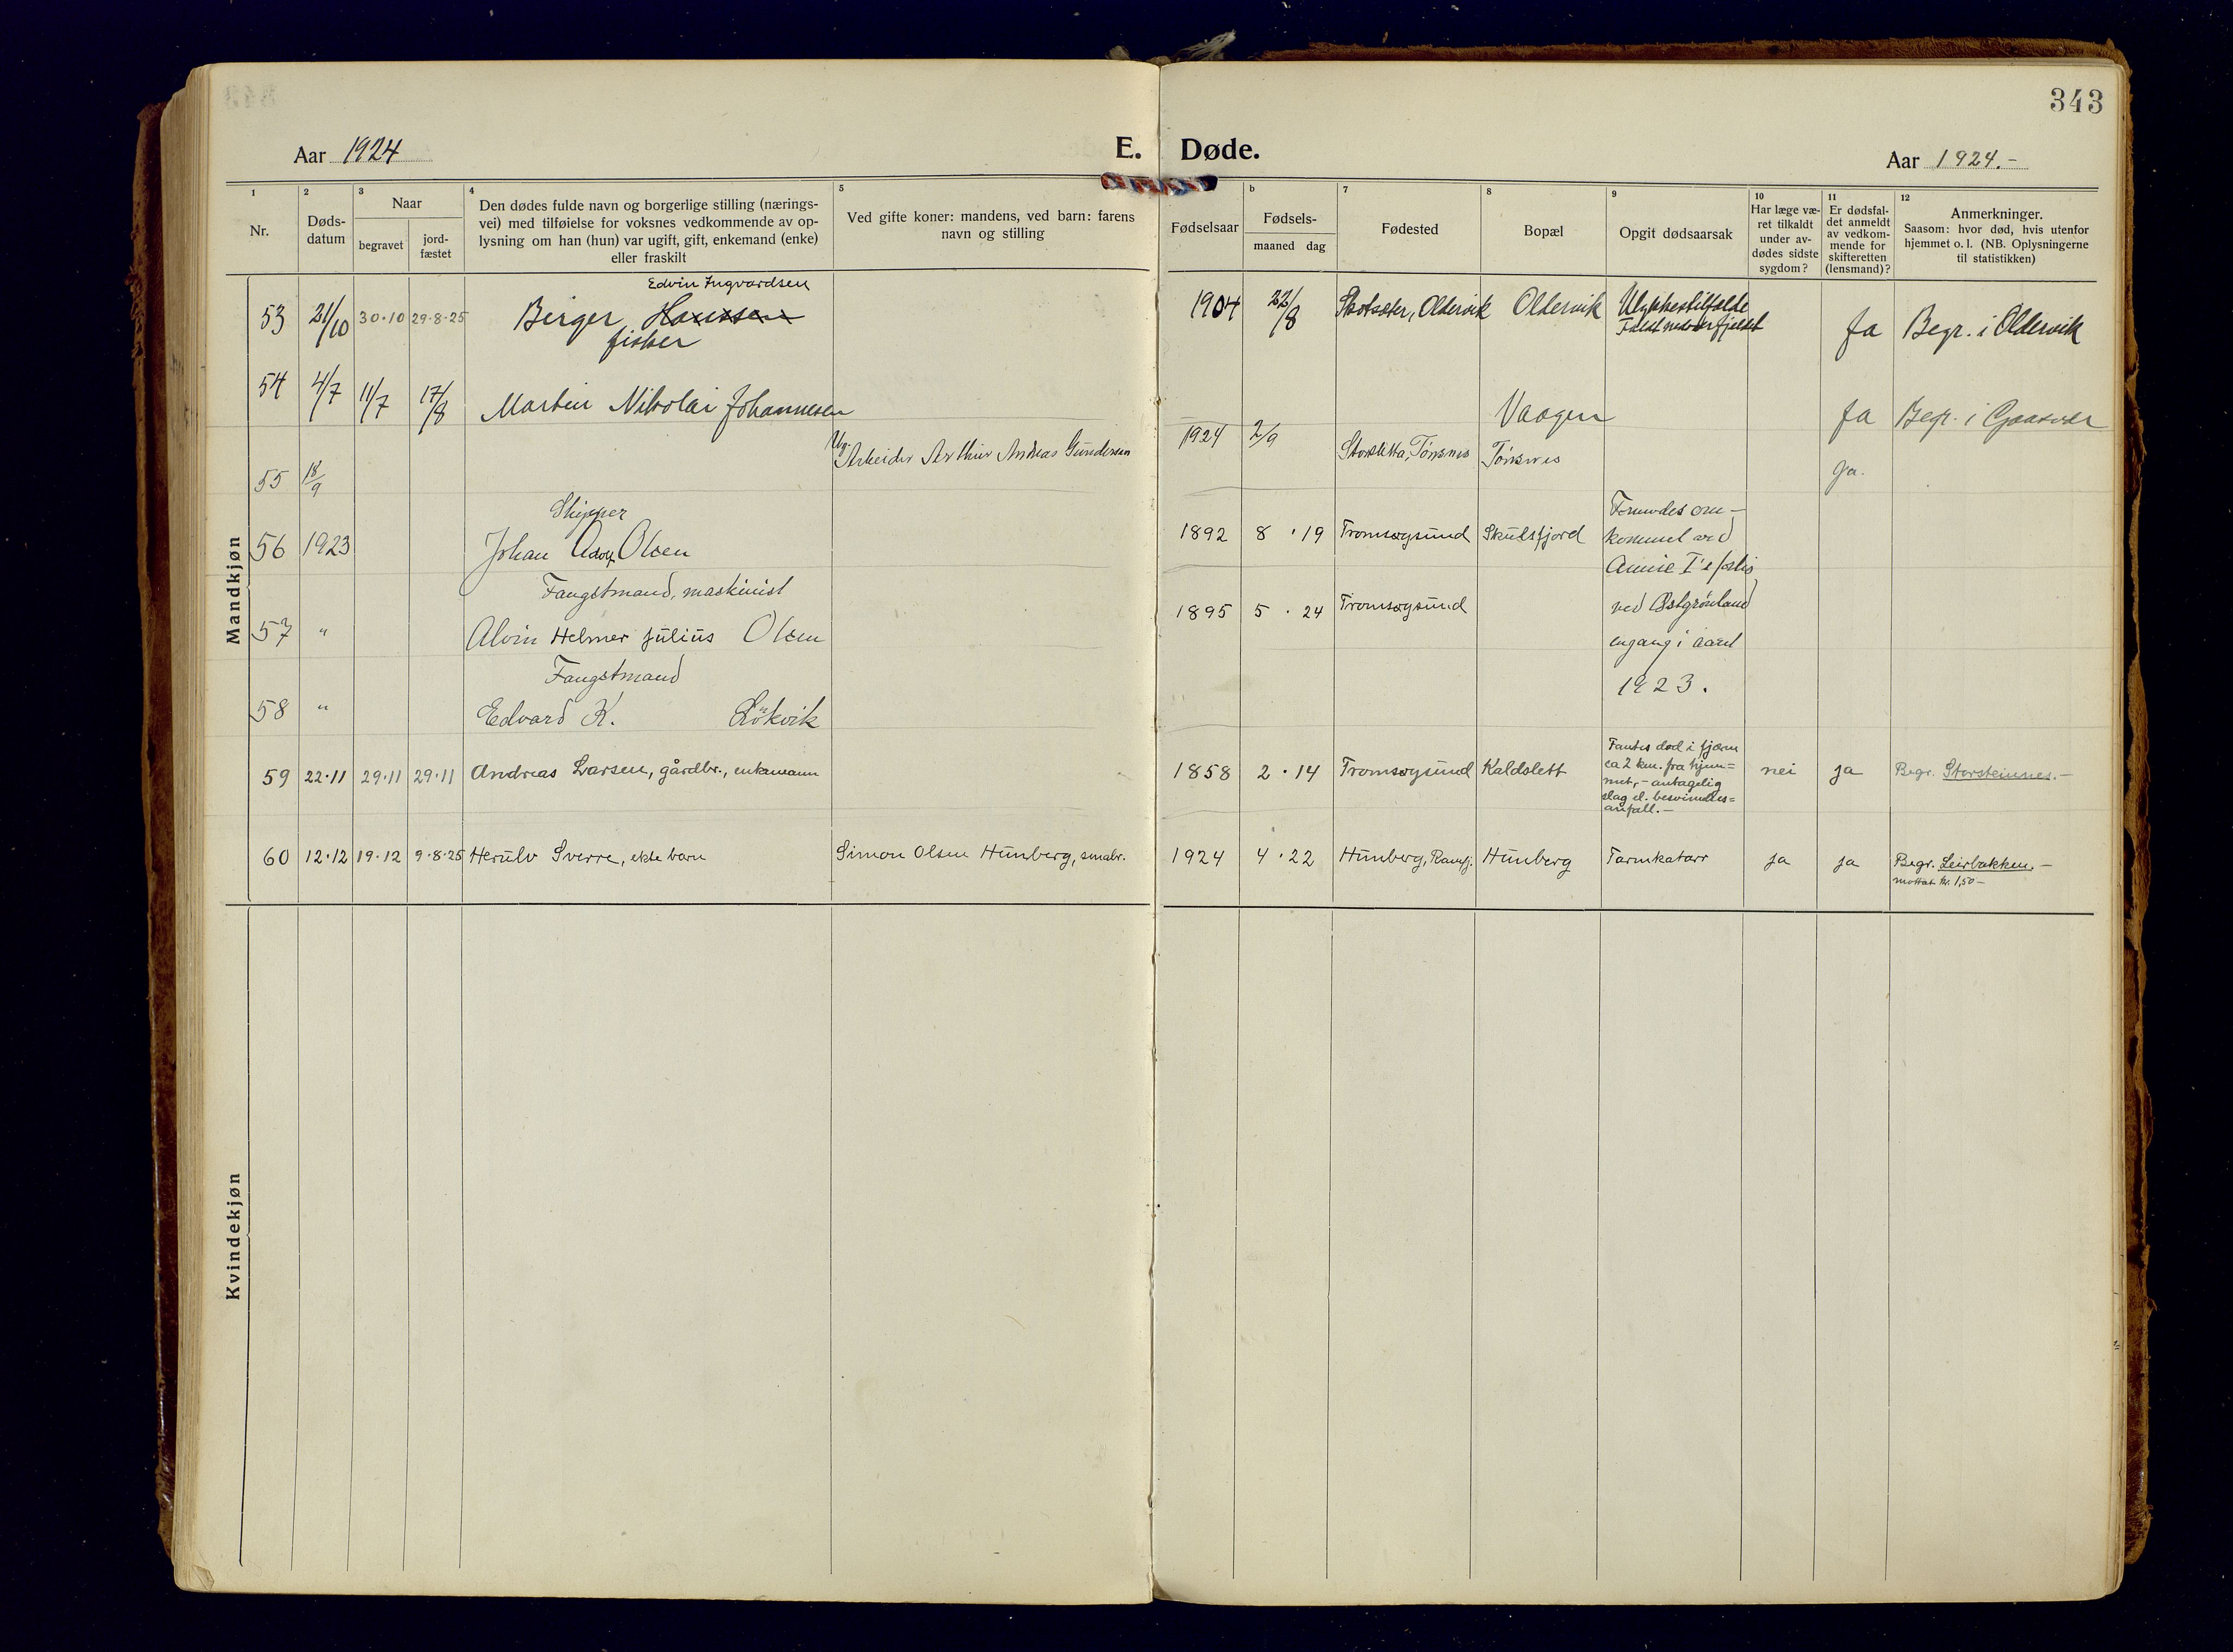 343
Aar 1924
E. Døde.
Aar 1924.-
1 2 3 4 5 b 7 8 9 10 11 12
Nr.
Døds-
datum
Naar
begravet
jord-
fæstet
Den dødes fulde navn og borgerlige stilling (nærings-
vei) med tilføielse for voksnes vedkommende av op-
lysning om han (hun) var ugift, gift, enkemand (enke)
eller fraskilt
Ved gifte koner: mandens, ved barn: farens
navn og stilling
Fødselsaar
Fødsels-
maaned dag
Fødested
Bopæl
Opgit dødsaarsak
Har læge væ-
ret tilkaldt
under av-
dødes sidste
sygdom?
Er dødsfal-
det anmeldt
av vedkom-
mende for
skifteretten
(lensmand)?
Anmerkninger.
Saasom: hvor død, hvis utenfor
hjemmet o. l. (NB. Oplysningerne
til statistikken)
Mandkjøn
Edvin Ingvardsen
53 21/10 30·10 29·8·25 Birger Hanssen
fisker
1904 22/8 Skotsæter, Oldervik Oldervik Ulykkestilfælde
ja Begr. i Oldervik
54 4/7 11/7 17/8 Martin Nikolai Johannesen
Vaagen ja Begr. i Gaasvær
55 18/9 Arbeider Arthur Andreas Gundersen
1924 2/9 Storslette, Tönsnes Tönsnes ja.
Skipper
56 1923 Johan Adolf Olsen
1892 8 · 19 Tromsøysund Skulsfjord
Formodes om-
kommet ved
Annie I's forlis
ved Østgrönland
engang i aaret
1923.
Fangstmand, maskinist
57 " Alvin Helmer Julius Olsen
1895 5 · 24 Tromsøysund
Fangstmand
58 " Edvard K. Lökvik
59 22·11 29·11 29·11 Andreas Larsen, gårdbr., enkemann
1858 2 · 14 Tromsøysund Kaldslett
Fantes död i fjæren
ca 2 km. fra hjem=
met, - antagelig
slag el. besvimelses=
anfall.-
nei ja Begr. Storsteinnes.-
60 12·12 19·12 9·8·25 Herulv Sverre, ekte barn
Simon Olsen Hünberg, småbr.
1924 4 · 22 Hünberg, Ramfj. Hünberg Tarmkatarr ja ja Begr. Leirbakken.-
mottat kr. 1,50-
Kvindekjøn